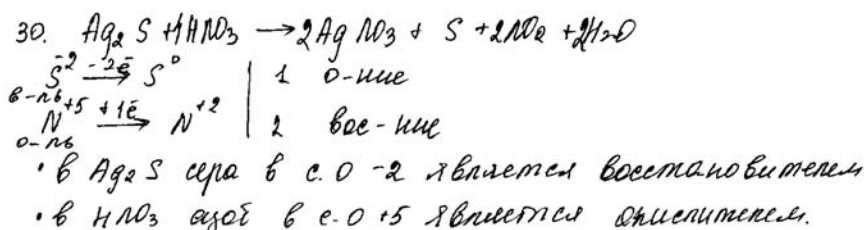 30. Ag₂S + 4HNO₃ → 2AgNO₃ + S + 2NO₂ + 2H₂O
S⁻² −2ē → S⁰ | 1 о-ние
в-ль
N⁺⁵ +1ē → N⁺² | 2 вос-ние
о-ль
• в Ag₂S сера в с.О −2 является восстановителем
• в HNO₃ азот в с.О +5 является окислителем.